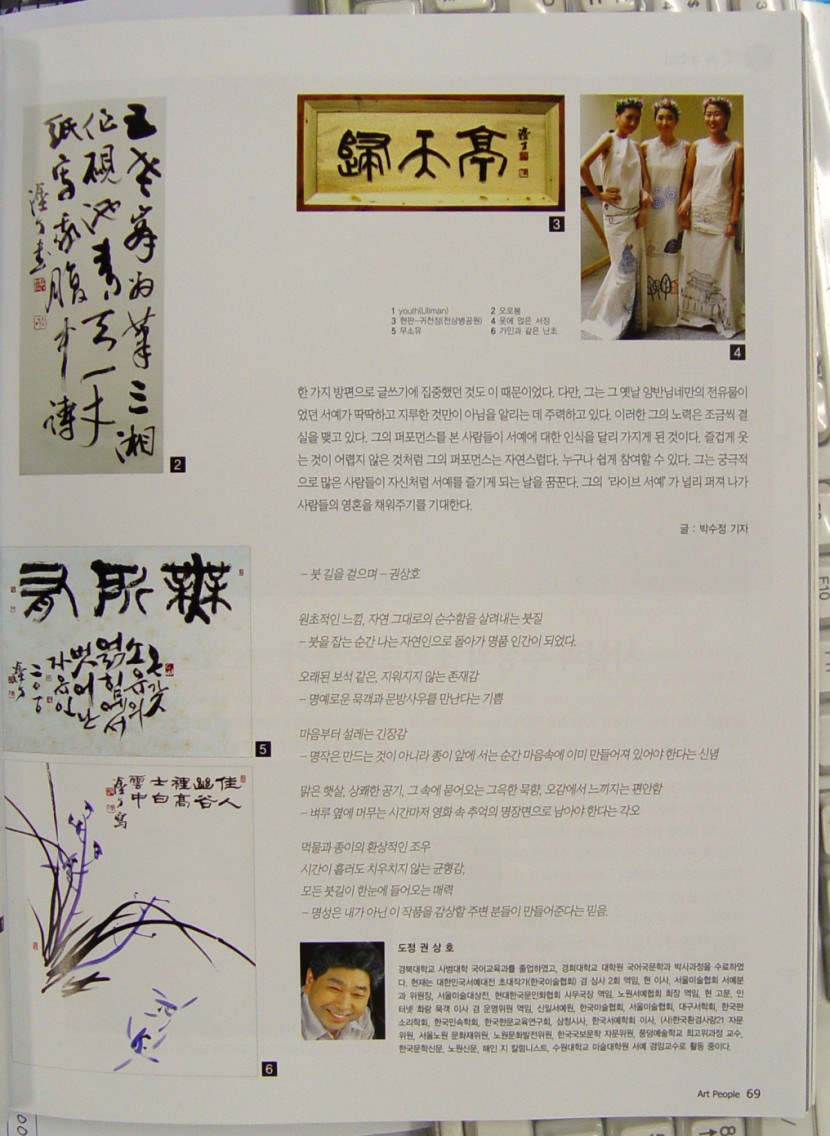 五老峯为筆三湘
作硯池青天一丈
紙寫我腹中詩
2
歸天亭
3
4
1 youth(Ullman) 2 오로봉
3 현판-귀천정(천상병공원) 4 옷에 얹은 서정
5 무소유 6 가인과 같은 난초
한 가지 방편으로 글쓰기에 집중했던 것도 이 때문이었다. 다만, 그는 그 옛날 양반님네만의 전유물이
었던 서예가 딱딱하고 지루한 것만이 아님을 알리는 데 주력하고 있다. 이러한 그의 노력은 조금씩 결
실을 맺고 있다. 그의 퍼포먼스를 본 사람들이 서예에 대한 인식을 달리 가지게 된 것이다. 즐겁게 웃
는 것이 어렵지 않은 것처럼 그의 퍼포먼스는 자연스럽다. 누구나 쉽게 참여할 수 있다. 그는 궁극적
으로 많은 사람들이 자신처럼 서예를 즐기게 되는 날을 꿈꾼다. 그의 '라이브 서예'가 널리 퍼져 나가
사람들의 영혼을 채워주기를 기대한다.
글 : 박수정 기자
無所有
온갖
소유의
얽힘에서
벗어난
자유인
5
– 붓 길을 걸으며 – 권상호
원초적인 느낌, 자연 그대로의 순수함을 살려내는 붓질
– 붓을 잡는 순간 나는 자연인으로 돌아가 명품 인간이 되었다.
오래된 보석 같은, 지워지지 않는 존재감
– 명예로운 묵객과 문방사우를 만난다는 기쁨
마음부터 설레는 긴장감
– 명작은 만드는 것이 아니라 종이 앞에 서는 순간 마음속에 이미 만들어져 있어야 한다는 신념
맑은 햇살, 상쾌한 공기, 그 속에 묻어오는 그윽한 묵향, 오감에서 느껴지는 편안함
– 벼루 옆에 머무는 시간마저 영화 속 추억의 명장면으로 남아야 한다는 각오
먹물과 종이의 환상적인 조우
시간이 흘러도 치우치지 않는 균형감,
모든 붓길이 한눈에 들어오는 매력
– 명성은 내가 아닌 이 작품을 감상할 주변 분들이 만들어준다는 믿음.
佳人
幽谷
裡高
士白
雲中
6
도정 권 상 호
경북대학교 사범대학 국어교육과를 졸업하였고, 경희대학교 대학원 국어국문학과 박사과정을 수료하였
다. 현재는 대한민국서예대전 초대작가(한국미술협회) 겸 심사 2회 역임, 현 이사, 서울미술협회 서예분
과 위원장, 서울미술대상전, 현대한국문인화협회 사무국장 역임, 노원서예협회 회장 역임, 현 고문, 인
터넷 화랑 묵객 이사 겸 운영위원 역임, 신일서예원, 한국미술협회, 서울미술협회, 대구서학회, 한국판
소리학회, 한국민속학회, 한국한문교육연구회, 삼청시사, 한국서예학회 이사, (사)한국환경사랑21 자문
위원, 서울노원 문화재위원, 노원문화발전위원, 한국국보문학 자문위원, 풍덩예술학교 최고위과정 교수,
한국문학신문, 노원신문, 해인 지 칼럼니스트, 수원대학교 미술대학원 서예 겸임교수로 활동 중이다.
Art People 69